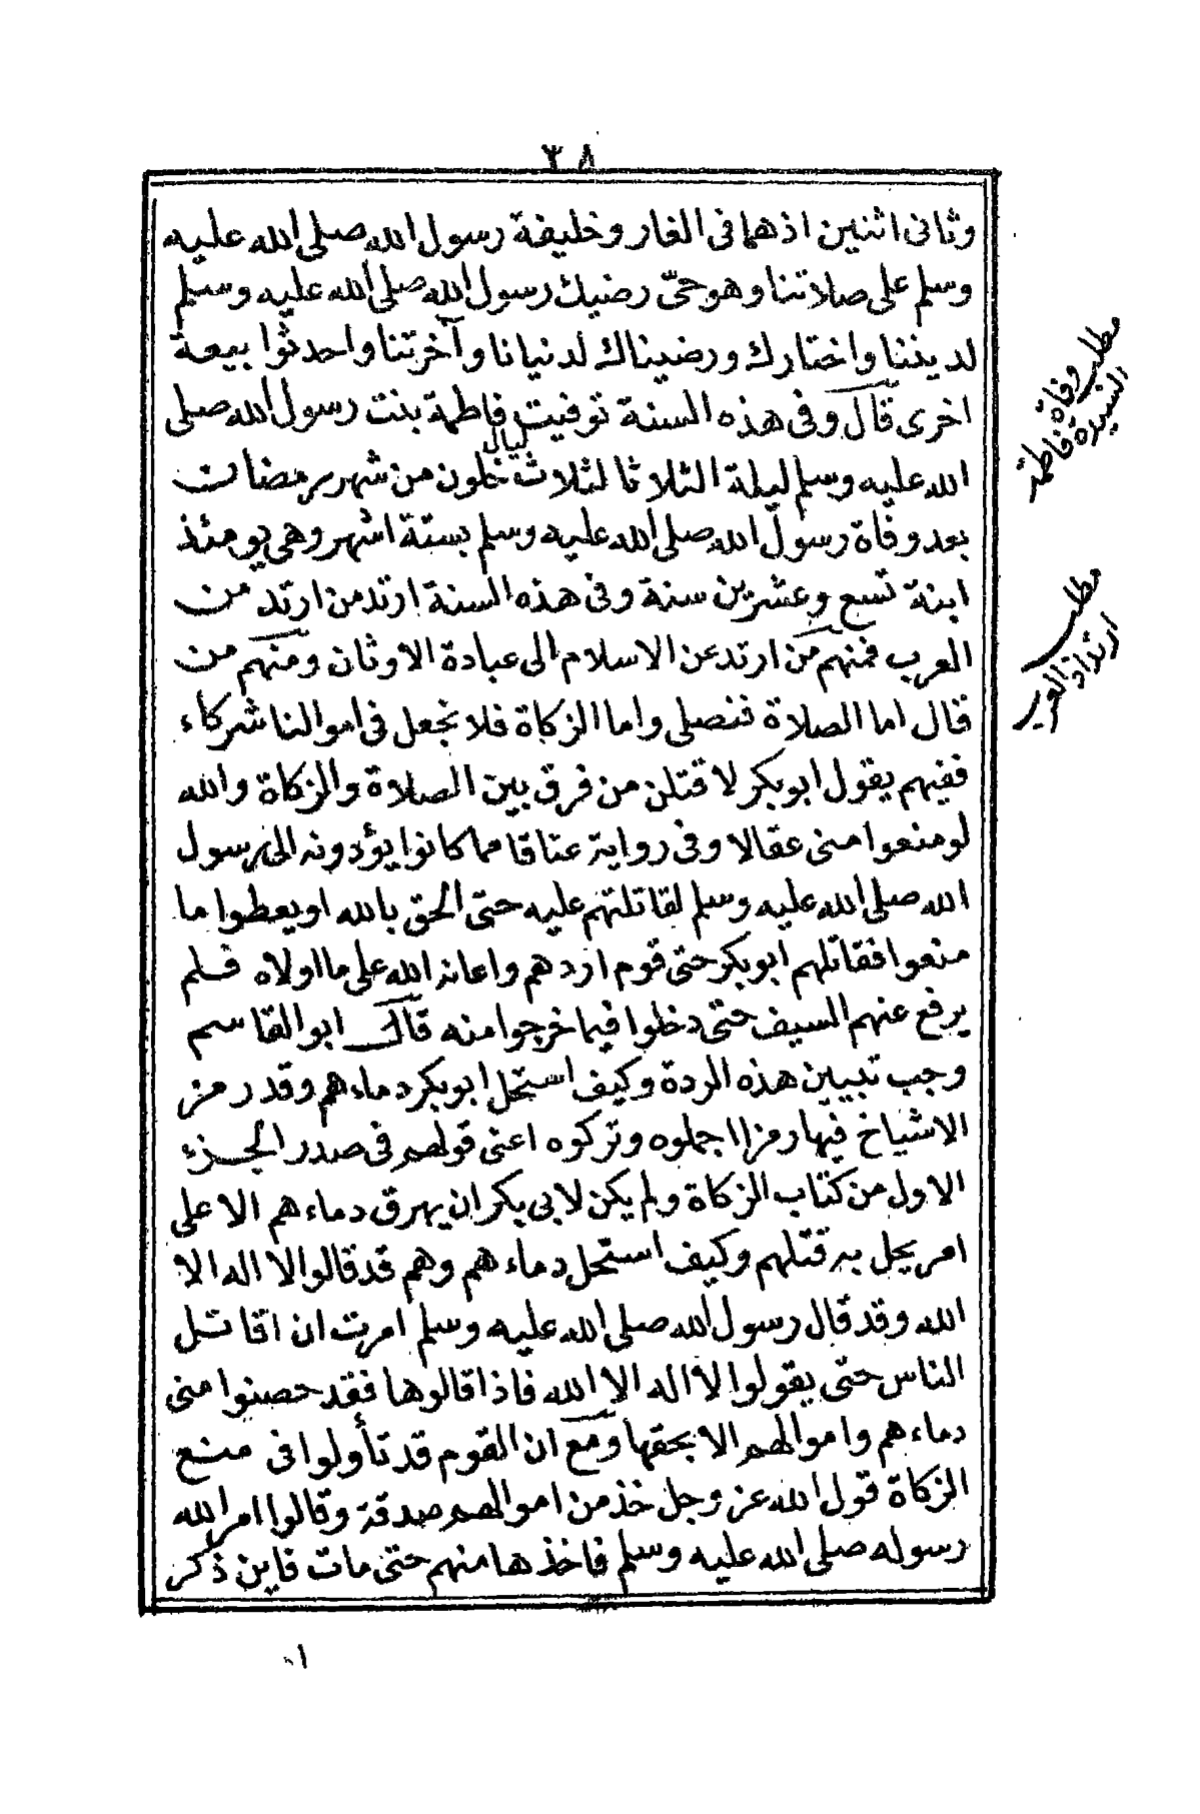 ٣٨
وثانى اثنين اذهما فى الغار وخليفة رسول الله صلى الله عليه
وسلم على صلاتنا وهو حىّ رضيك رسول الله صلى الله عليه وسلم
لديننا واختارك ورضيناك لدنيانا وآخرتنا واحدثوا بيعة
اخرى قال وفى هذه السنة توفيت فاطمة بنت رسول الله صلى
الله عليه وسلم ليلة الثلاثا لثلاث ليال خلون من شهر رمضان
بعد وفاة رسول الله صلى الله عليه وسلم بستة اشهر وهى يومئذ
ابنة تسع وعشرين سنة وفى هذه السنة ارتد من ارتد من
العرب فمنهم من ارتد عن الاسلام الى عبادة الاوثان ومنهم من
قال اما الصلاة فنصلى واما الزكاة فلا نجعل فى اموالنا شركاء
ففيهم يقول ابو بكر لاقتلن من فرق بين الصلاة والزكاة والله
لو منعوا منى عقالا وفى رواية عناقا مما كانوا يؤدونه الى رسول
الله صلى الله عليه وسلم لقاتلتهم عليه حتى الحق بالله او يعطوا ما
منعوا فقاتلهم ابو بكر حتى قوم اردهم واعانه الله على ما اولاه فلم
يرفع عنهم السيف حتى دخلوا فيما خرجوا منه قال ابو القاسم
وجب تبيين هذه الردة وكيف استحل ابو بكر دماءهم وقد رمز
الاشياخ فيها رمزا اجملوه وتركوه اعنى قولهم فى صدر الجزء
الاول من كتاب الزكاة ولم يكن لابى بكر ان يهرق دماءهم الا على
امر يحل به قتلهم وكيف استحل دماءهم وهم قد قالوا لا اله الا
الله وقد قال رسول الله صلى الله عليه وسلم امرت ان اقاتل
الناس حتى يقولوا لا اله الا الله فاذا قالوها فقد حصنوا منى
دماءهم واموالهم الا بحقها ومع ان القوم قد تأولوا فى منع
الزكاة قول الله عز وجل خذ من اموالهم صدقة وقالوا امر الله
رسوله صلى الله عليه وسلم فاخذها منهم حتى مات فاين ذكر
مطلب وفاة
السيدة فاطمة
مطلب
ارتداد العرب